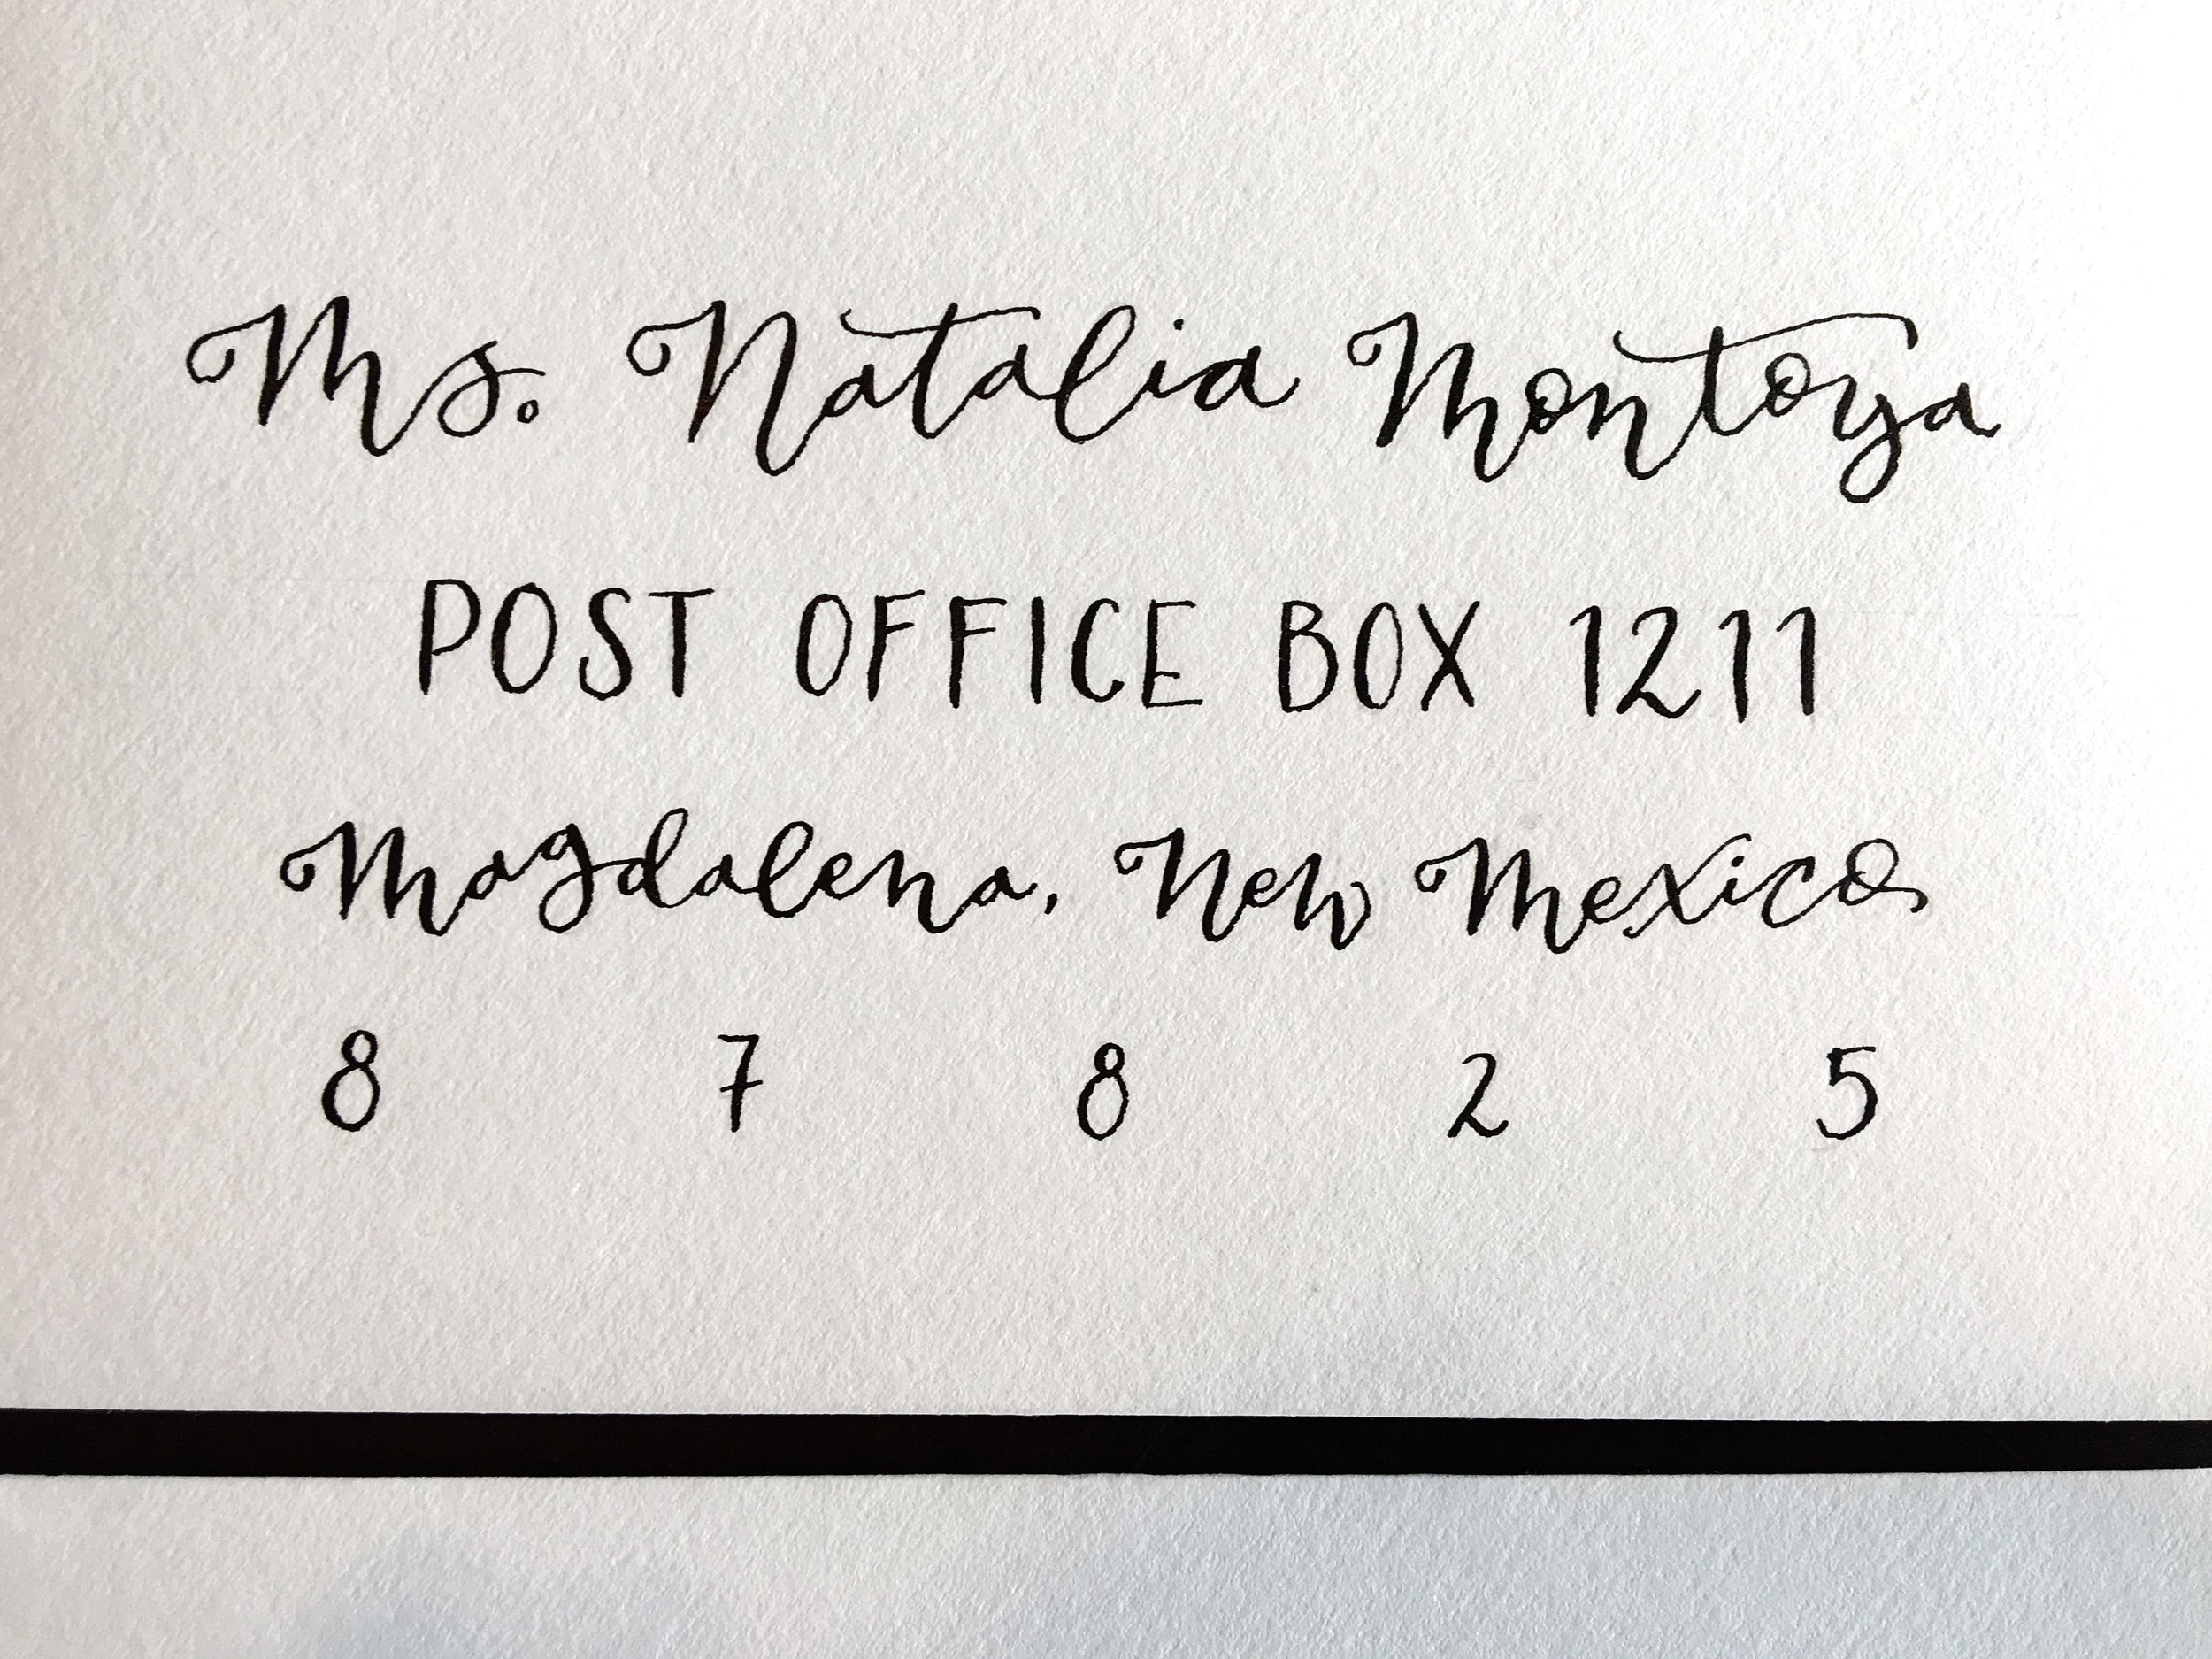 Ms. Natalia Montoya
POST OFFICE BOX 1211
Magdalena, New Mexico
8 7 8 2 5